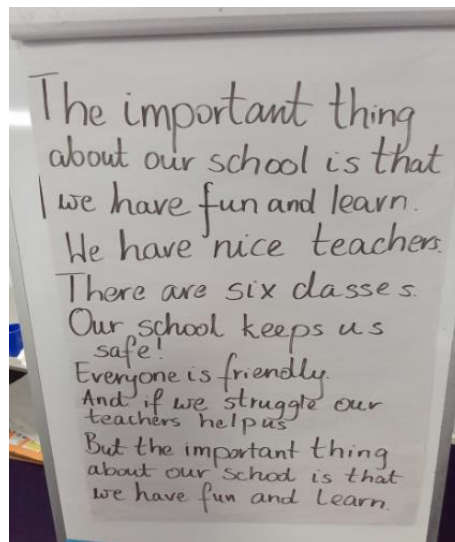 The important thing
about our school is that
we have fun and learn.
We have nice teachers.
There are six classes.
Our school keeps us
safe!
Everyone is friendly.
And if we struggle our
teachers help us
But the important thing
about our school is that
we have fun and learn.